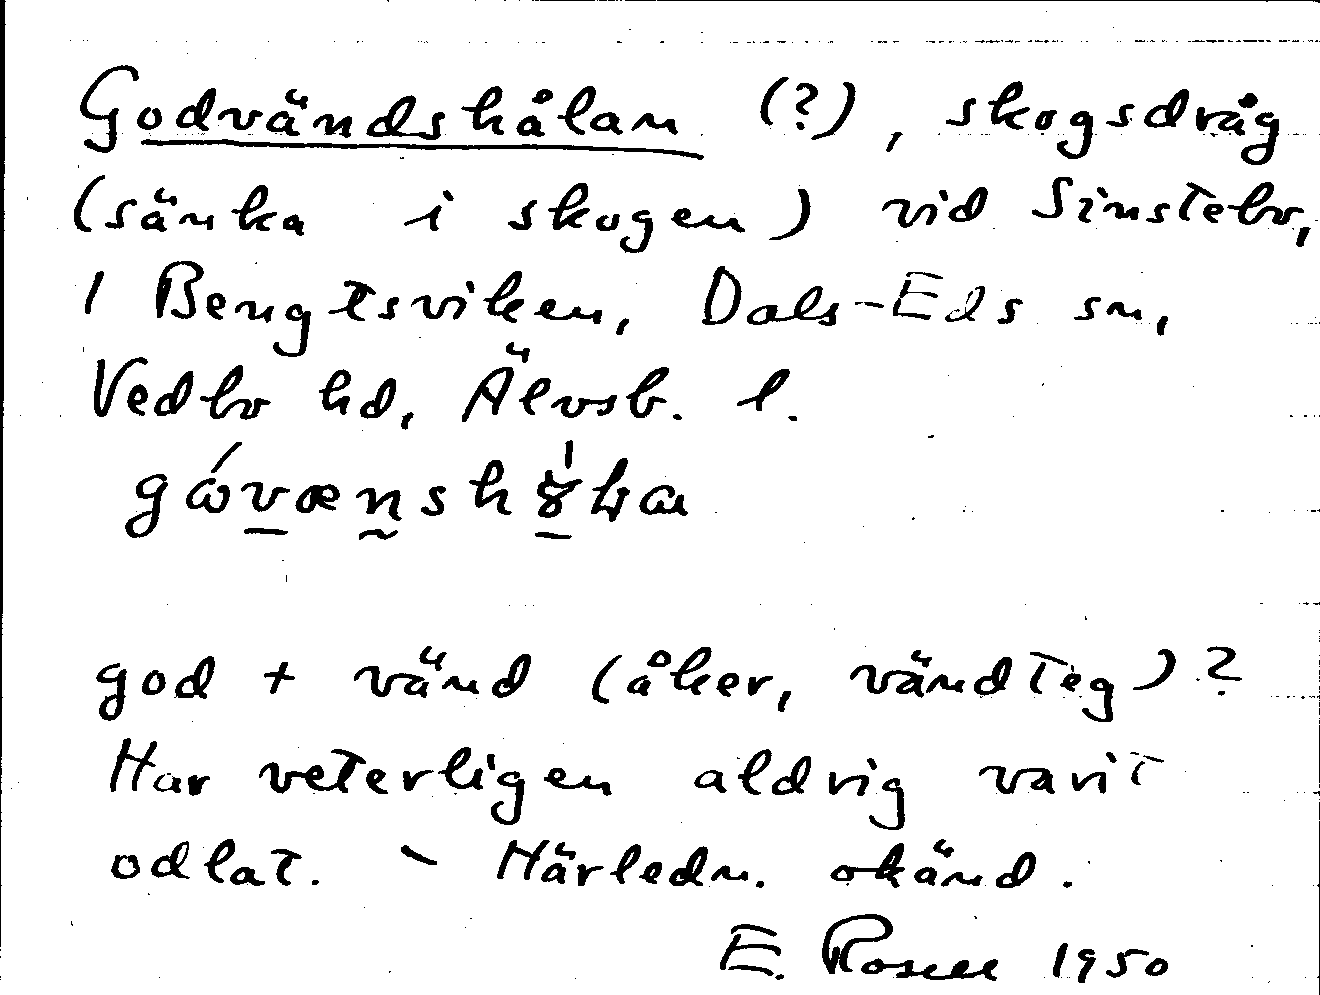 Godvändshålan (?), skogsdråg
(sänka i skogen) vid Sinstebv,
1 Bengtsviken, Dals-Eds sn,
Vedbo hd, Älvsb. l.
god + vänd (åker, vändteg)?
Har veterligen aldrig varit
odlat. - Härledn. okänd.
E. Rosell 1950